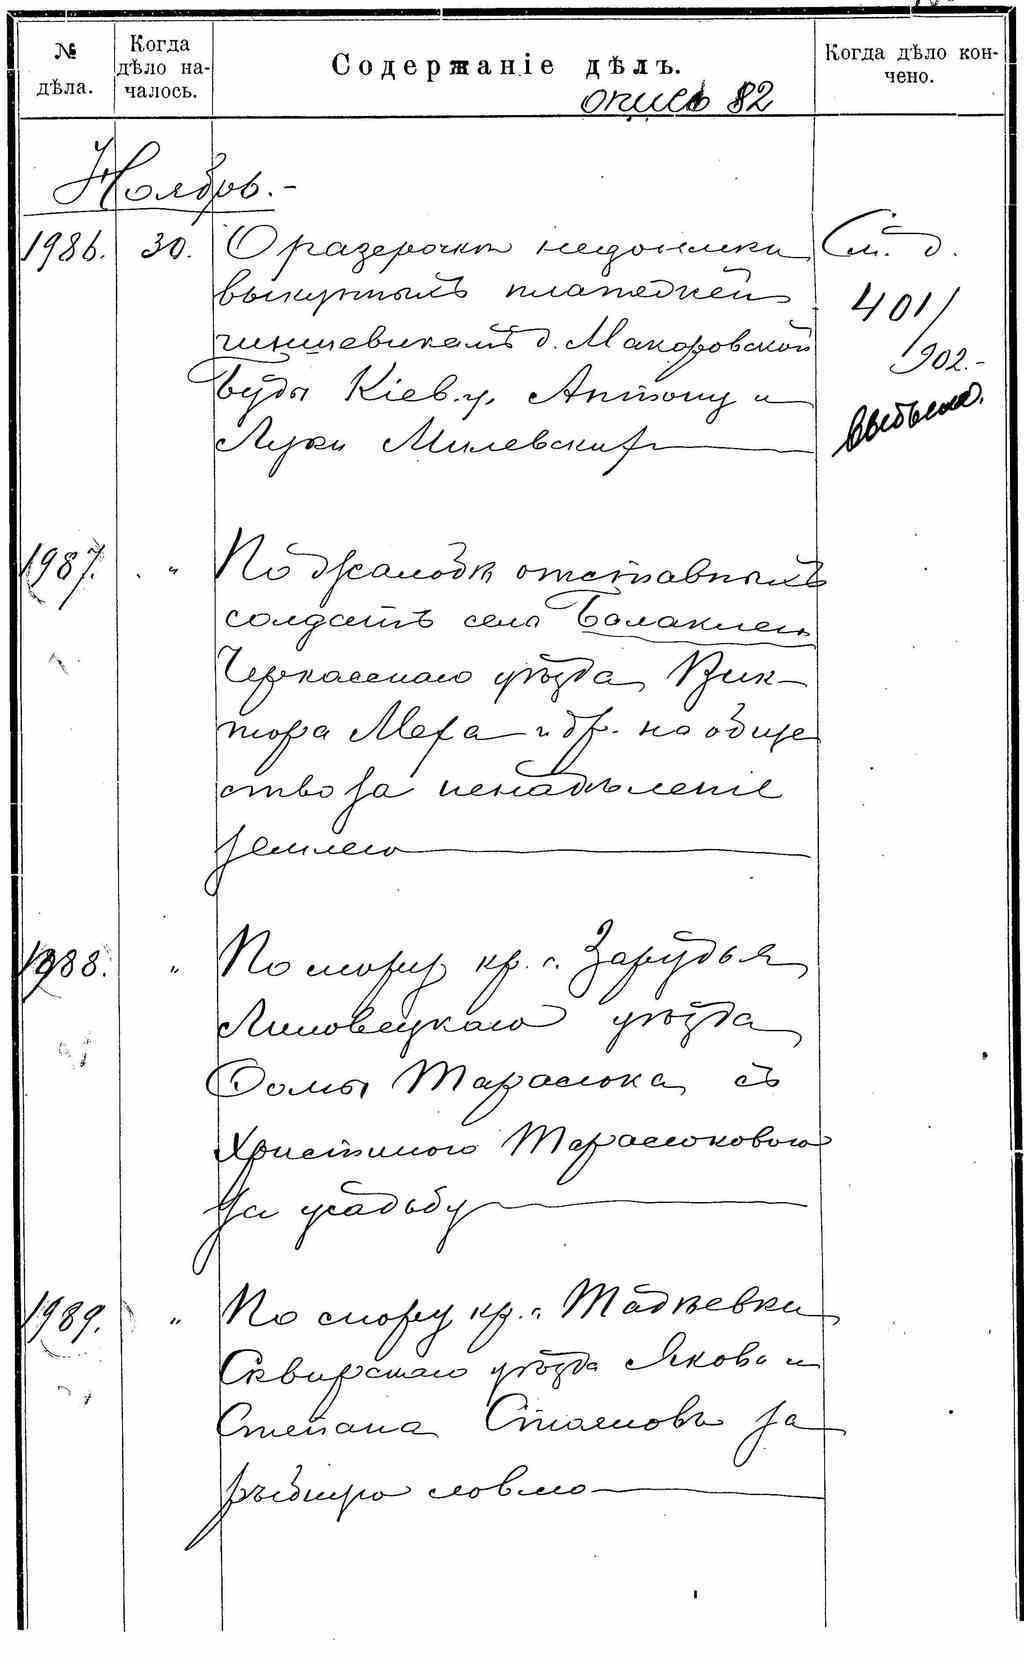 № дѣла.
Когда дѣло началось.
Содержаніе дѣлъ.
Когда дѣло кончено.
опись 82
Ноябрь.-
1986. 30. О разсрочкѣ недоимки См. д.
выкупныхъ платежей 401/
чиншевикамъ д. Макаровской 902.-
Буды Кіев. у. Антону и выбыло.
Луки Милевских
1987. " По жалобѣ отставныхъ
солдатъ села Балаклеи
Черкасскаго уѣзда Вик-
тора Меха и др. на обще
ство за ненадѣленіе
землею
1988. " По спору кр. с. Зарудья
Липовецкаго уѣзда
Ѳомы Тарасюка съ
Христиною Тарасюковою
за усадьбу
1989. " По спору кр. с. Татіевки
Сквирскаго уѣзда Якова и
Степана Стаеновъ за
рыбную ловлю